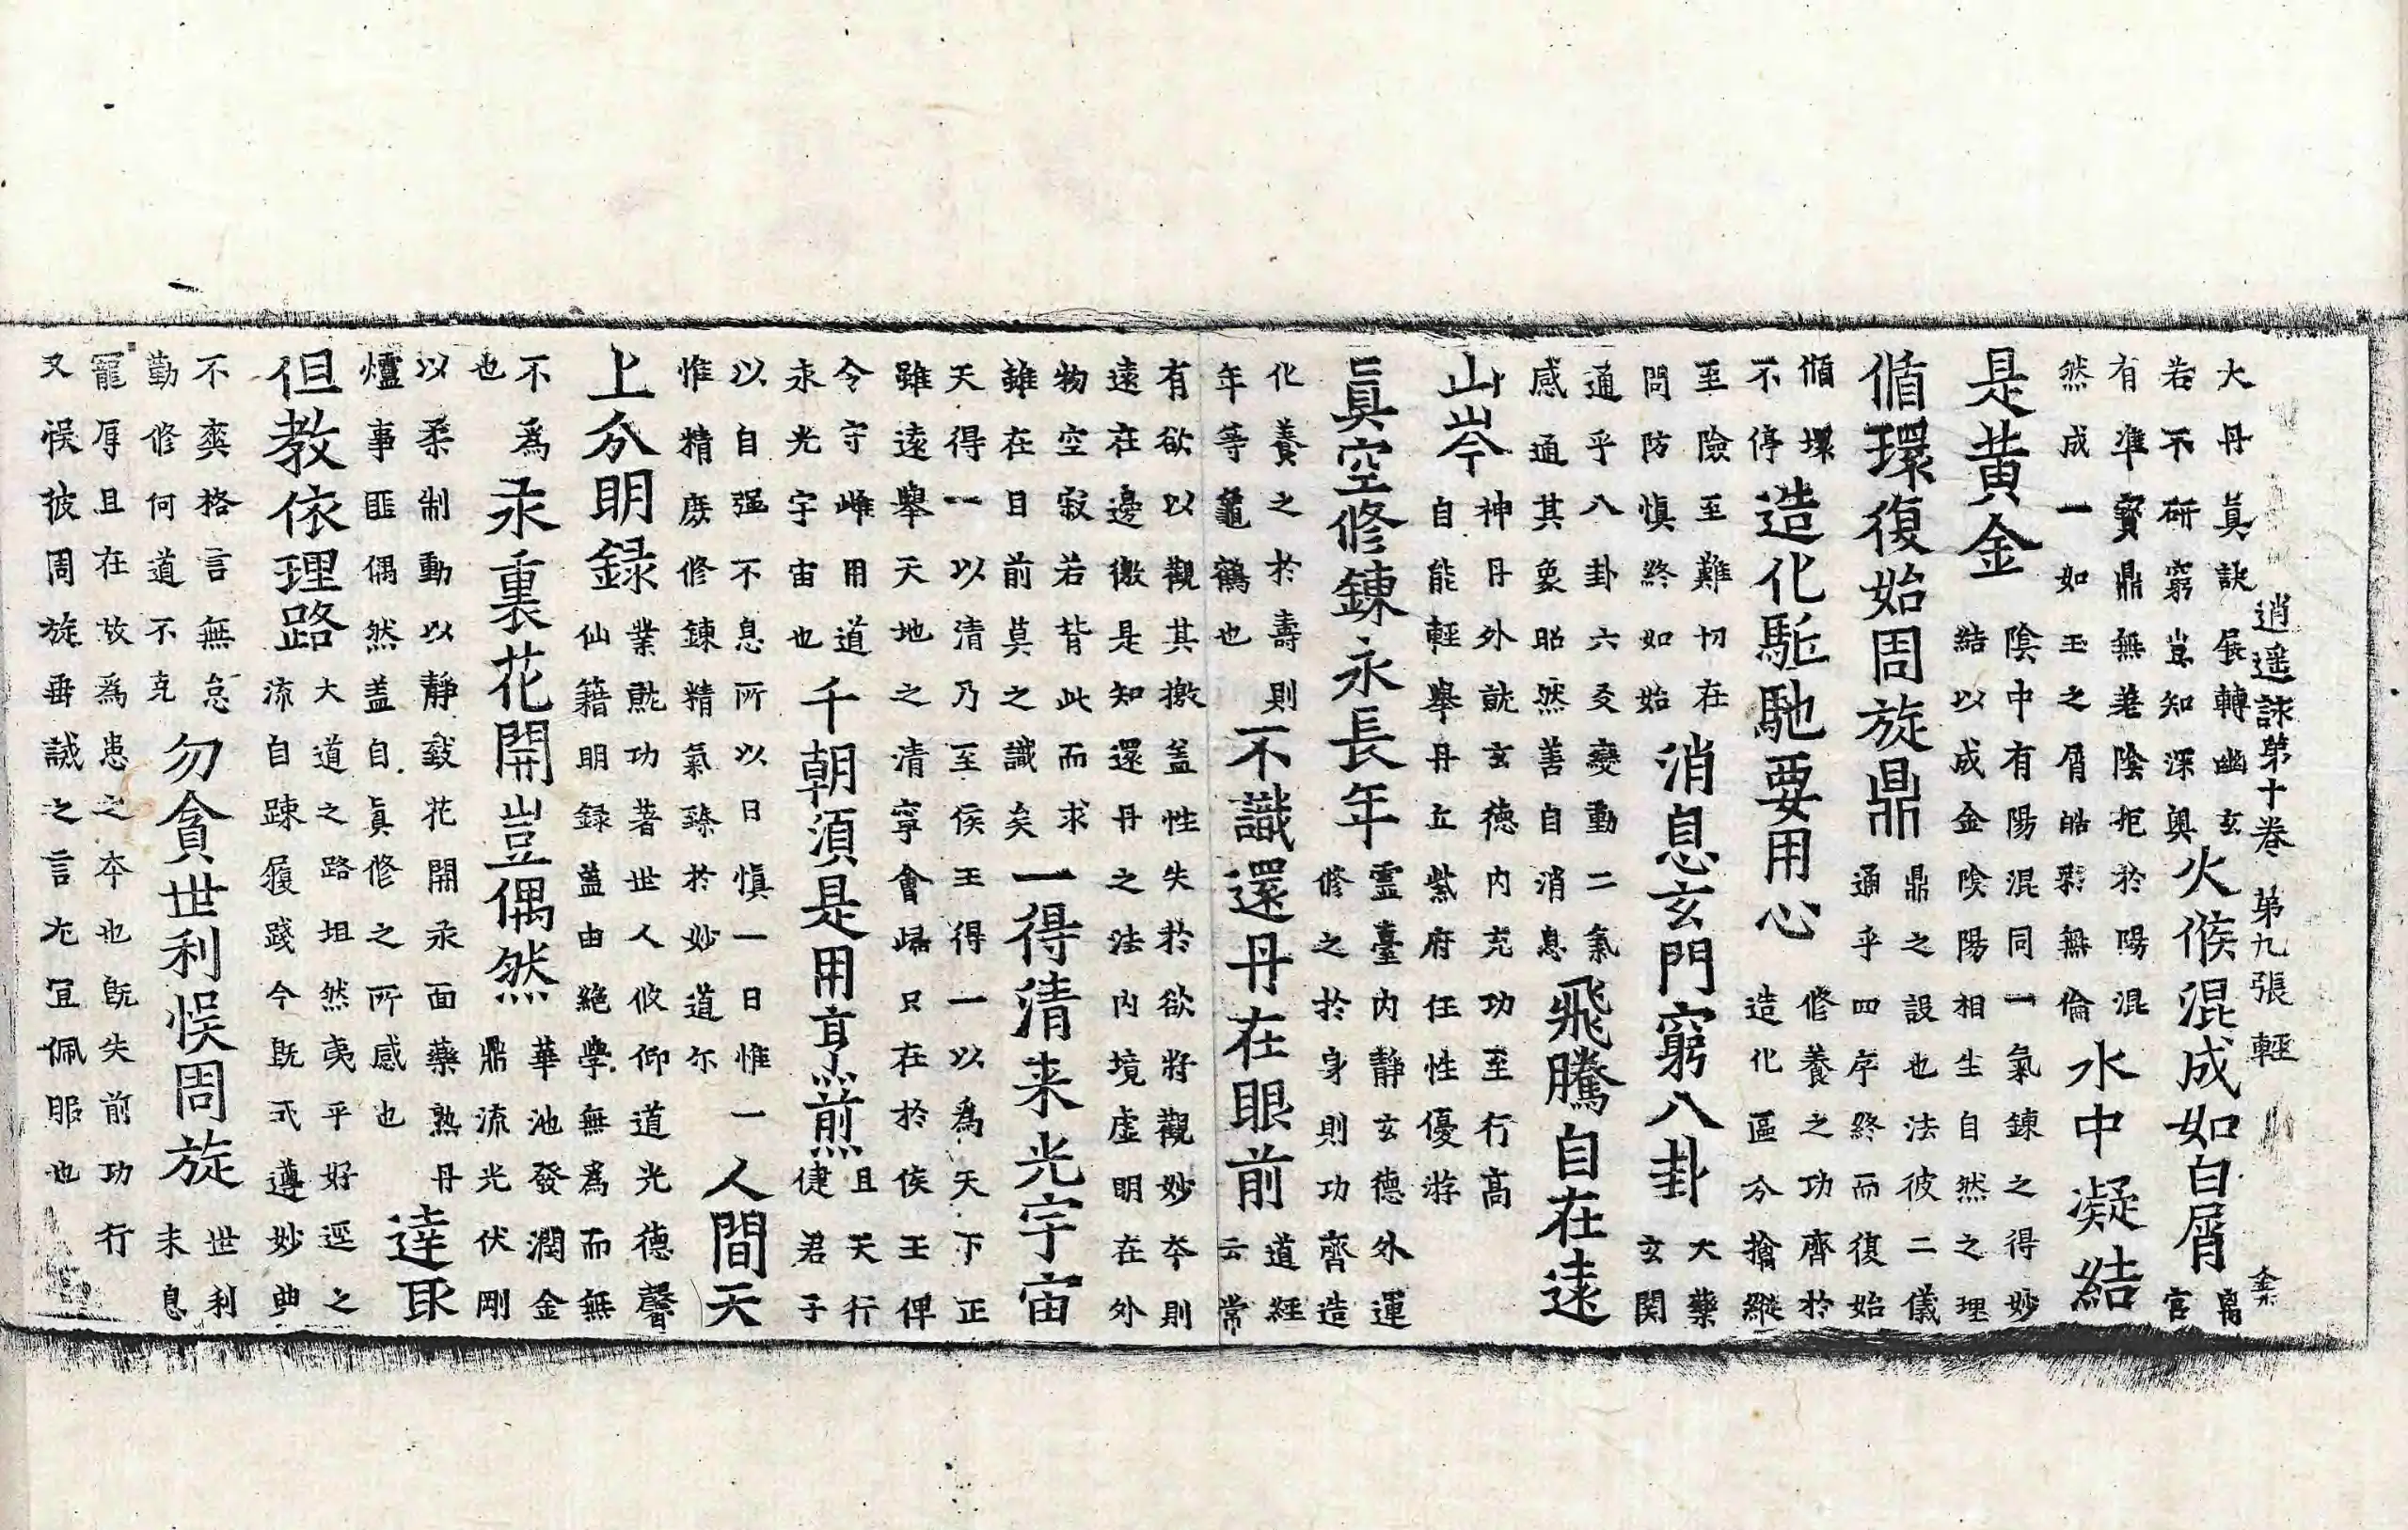 逍遥詠第十卷 第九張 輕
大丹真訣展轉幽玄
若不研窮豈知深奥
火候混成如白屑
離
宮
有準寶鼎無差陰抱於陽混
然成一如玉之屑皓彩無倫
水中凝結
是黄金
陰中有陽混同一氣鍊之得妙
結以成金陰陽相生自然之理
循環復始周旋鼎
鼎之設也法彼二儀
通乎四序終而復始
循環
不停
造化駈馳要用心
修養之功齊於
造化區分擒縱
至險至難切在
問防慎終如始
消息玄門窮八卦
大藥
玄関
通乎八卦六爻變動二氣
感通其象昭然善自消息
飛騰自在遠
山岑
神丹外就玄德内充功至行高
自能輕舉丹丘紫府任性優游
真空修鍊永長年
靈臺内静玄德外運
修之於身則功齊造
化養之於壽則
年等龜鶴也
不識還丹在眼前
道經
云常
有欲以觀其徼盖性失於欲將觀妙夲則
遠在邊徼是知還丹之法内境虚明在外
物空寂若背此而求
雖在目前莫之識矣
一得清来光宇宙
天得一以清乃至侯王得一以為天下正
雖遠舉天地之清寧會歸只在於侯王俾
令守雌用道
永光宇宙也
千朝須是用烹煎
且天行
健君子
以自强不息所以日慎一日惟一
惟精庶修鍊精氣臻於妙道尔
人間天
上分明録
業就功著世人攸仰道光德馨
仙籍明録蓋由絶學無為而無
不為
也
汞裏花開豈偶然
華池發潤金
鼎流光伏剛
以柔制動以静致花開汞面藥熟丹
爐事匪偶然盖自真修之所感也
達取
但教依理路
大道之路坦然夷乎好逕之
流自踈履踐今既式遵妙典
不爽格言無怠
勤修何道不克
勿貪世利悮周旋
世利
末息
寵辱且在故為患之夲也既失前功行
又悮彼周旋垂誡之言尤宜佩服也